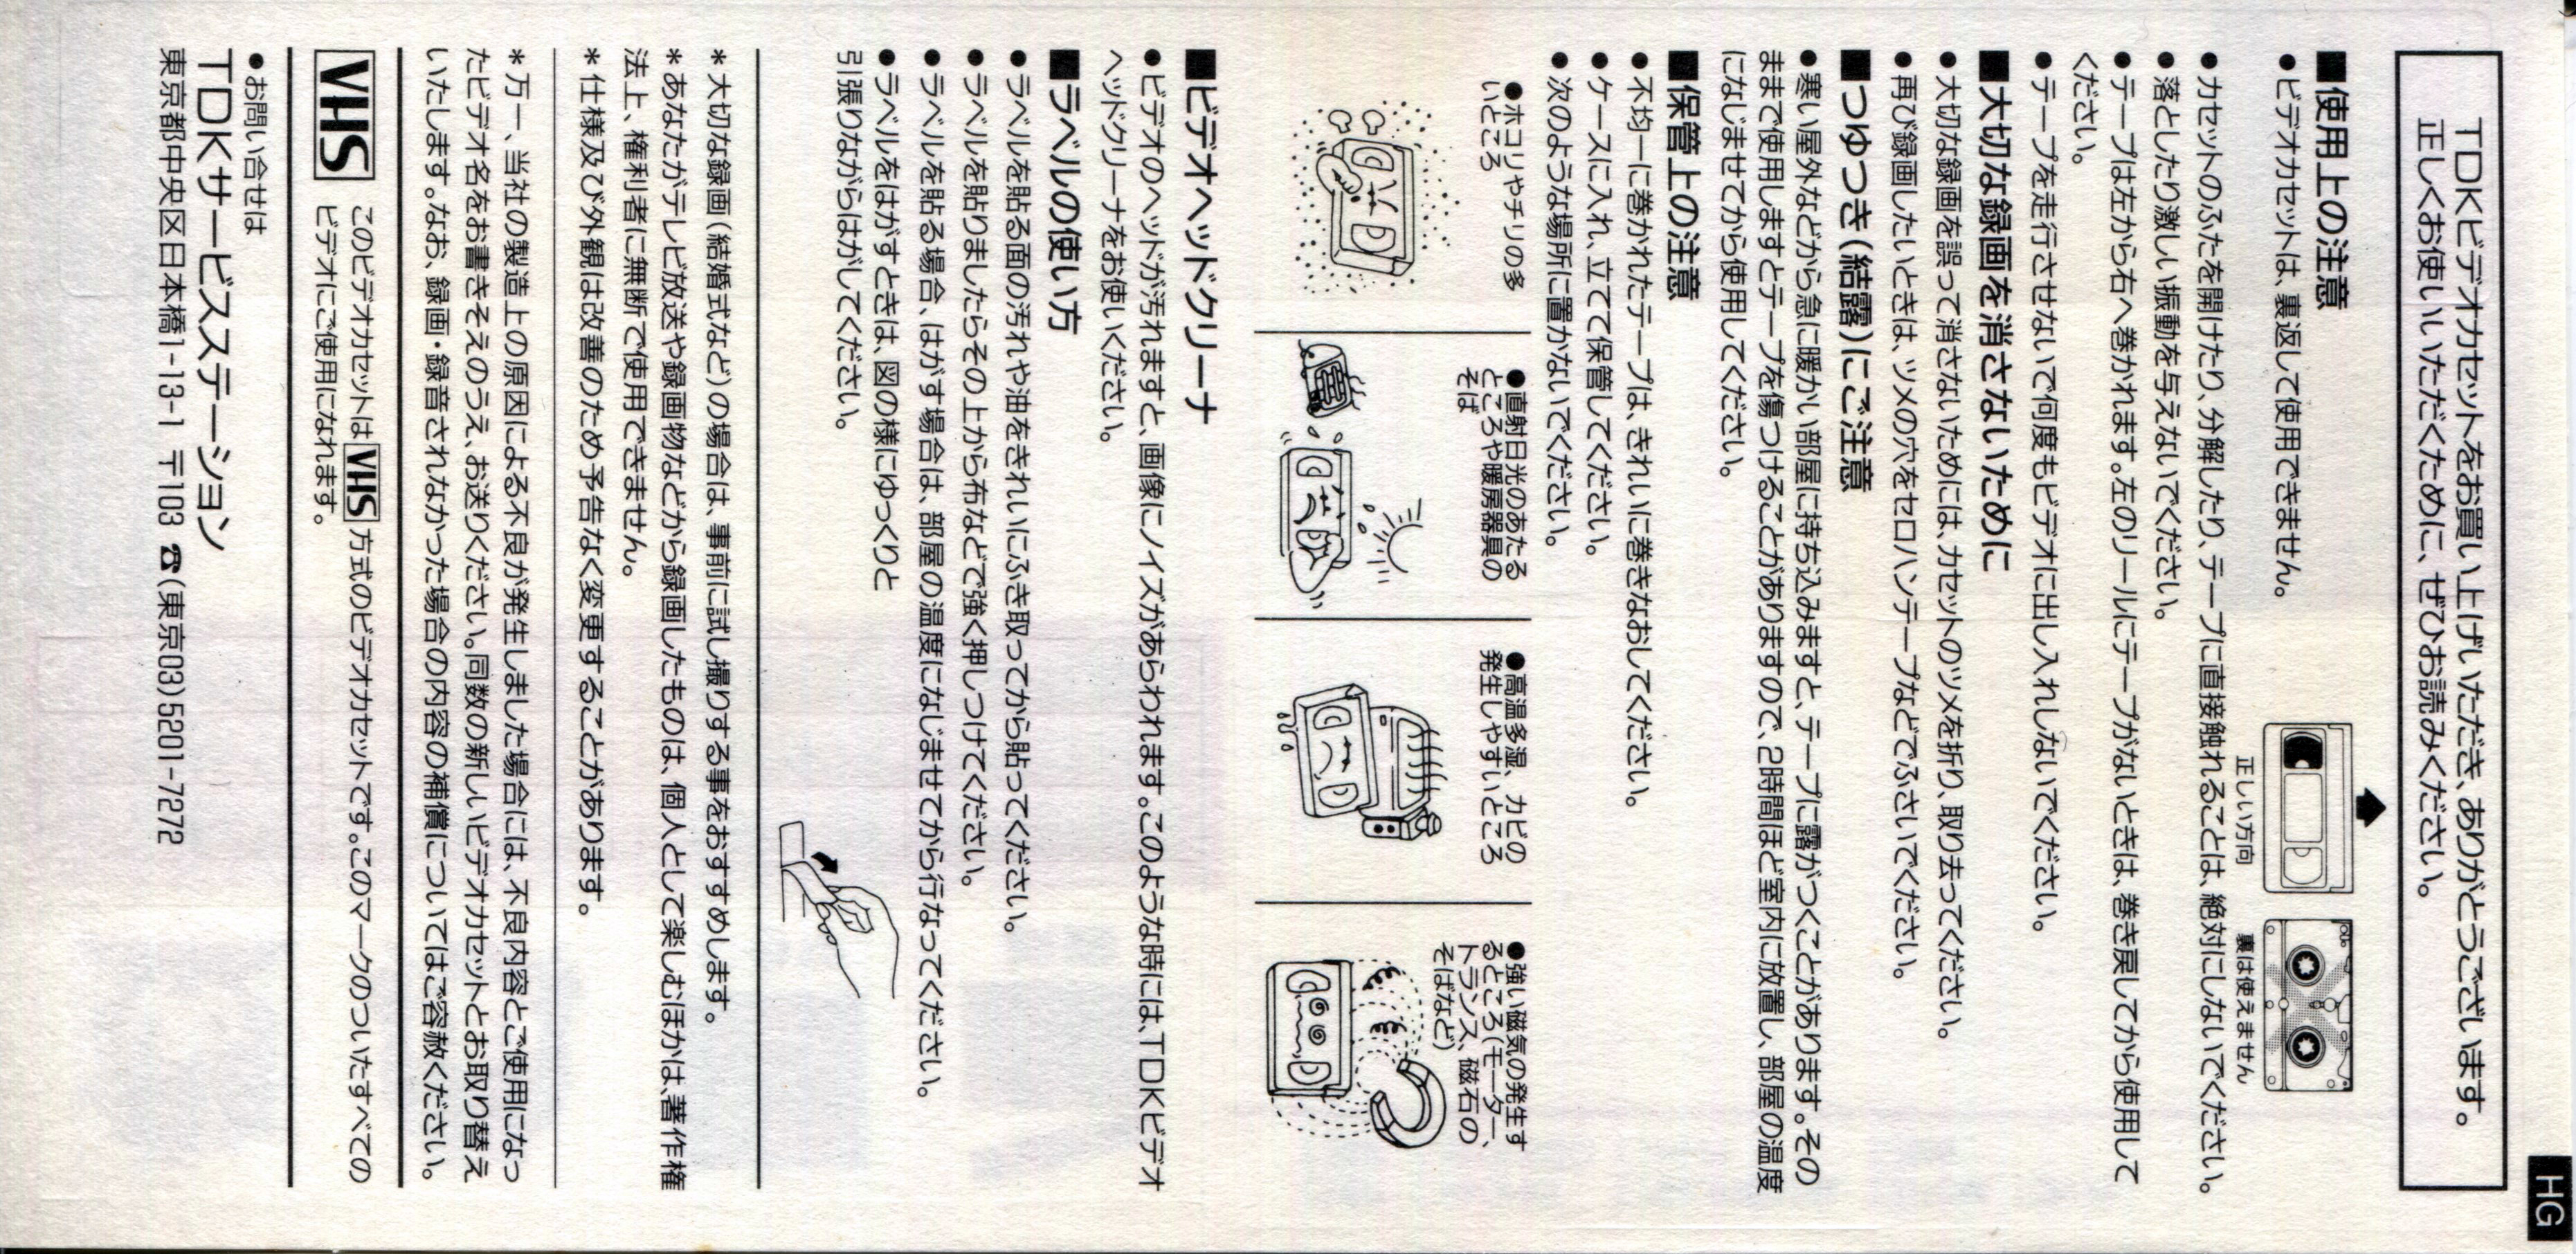 HG
TDKビデオカセットをお買い上げいただき、ありがとうございます。
正しくお使いいただくために、ぜひお読みください。
■使用上の注意
●ビデオカセットは、裏返して使用できません。
正しい方向
裏は使えません
●カセットのふたを開けたり、分解したり、テープに直接触れることは、絶対にしないでください。
●落としたり激しい振動を与えないでください。
●テープは左から右へ巻かれます。左のリールにテープがないときは、巻き戻してから使用して
ください。
●テープを走行させないで何度もビデオに出し入れしないでください。
■大切な録画を消さないために
●大切な録画を誤って消さないためには、カセットのツメを折り、取り去ってください。
●再び録画したいときは、ツメの穴をセロハンテープなどでふさいでください。
■つゆつき(結露)にご注意
●寒い屋外などから急に暖かい部屋に持ち込みますと、テープに露がつくことがあります。その
ままで使用しますとテープを傷つけることがありますので、2時間ほど室内に放置し、部屋の温度
になじませてから使用してください。
■保管上の注意
●不均一に巻かれたテープは、きれいに巻きなおしてください。
●ケースに入れ、立てて保管してください。
●次のような場所に置かないでください。
●ホコリやチリの多
いところ
●直射日光のあたる
ところや暖房器具の
そば
●高温多湿、カビの
発生しやすいところ
●強い磁気の発生す
るところ(モーター、
トランス、磁石の
そばなど)
■ビデオヘッドクリーナ
●ビデオのヘッドが汚れますと、画像にノイズがあらわれます。このような時には、TDKビデオ
ヘッドクリーナをお使いください。
■ラベルの使い方
●ラベルを貼る面の汚れや油をきれいにふき取ってから貼ってください。
●ラベルを貼りましたらその上から布などで強く押しつけてください。
●ラベルを貼る場合、はがす場合は、部屋の温度になじませてから行なってください。
●ラベルをはがすときは、図の様にゆっくりと
引張りながらはがしてください。
*大切な録画(結婚式など)の場合は、事前に試し撮りする事をおすすめします。
*あなたがテレビ放送や録画物などから録画したものは、個人として楽しむほかは、著作権
法上、権利者に無断で使用できません。
*仕様及び外観は改善のため予告なく変更することがあります。
*万一、当社の製造上の原因による不良が発生しました場合には、不良内容とご使用になっ
たビデオ名をお書きそえのうえ、お送りください。同数の新しいビデオカセットとお取り替え
いたします。なお、録画・録音されなかった場合の内容の補償についてはご容赦ください。
VHS このビデオカセットはVHS方式のビデオカセットです。このマークのついたすべての
ビデオにご使用になれます。
●お問い合せは
TDKサービスステーション
東京都中央区日本橋1-13-1 〒103 ☎(東京03)5201-7272